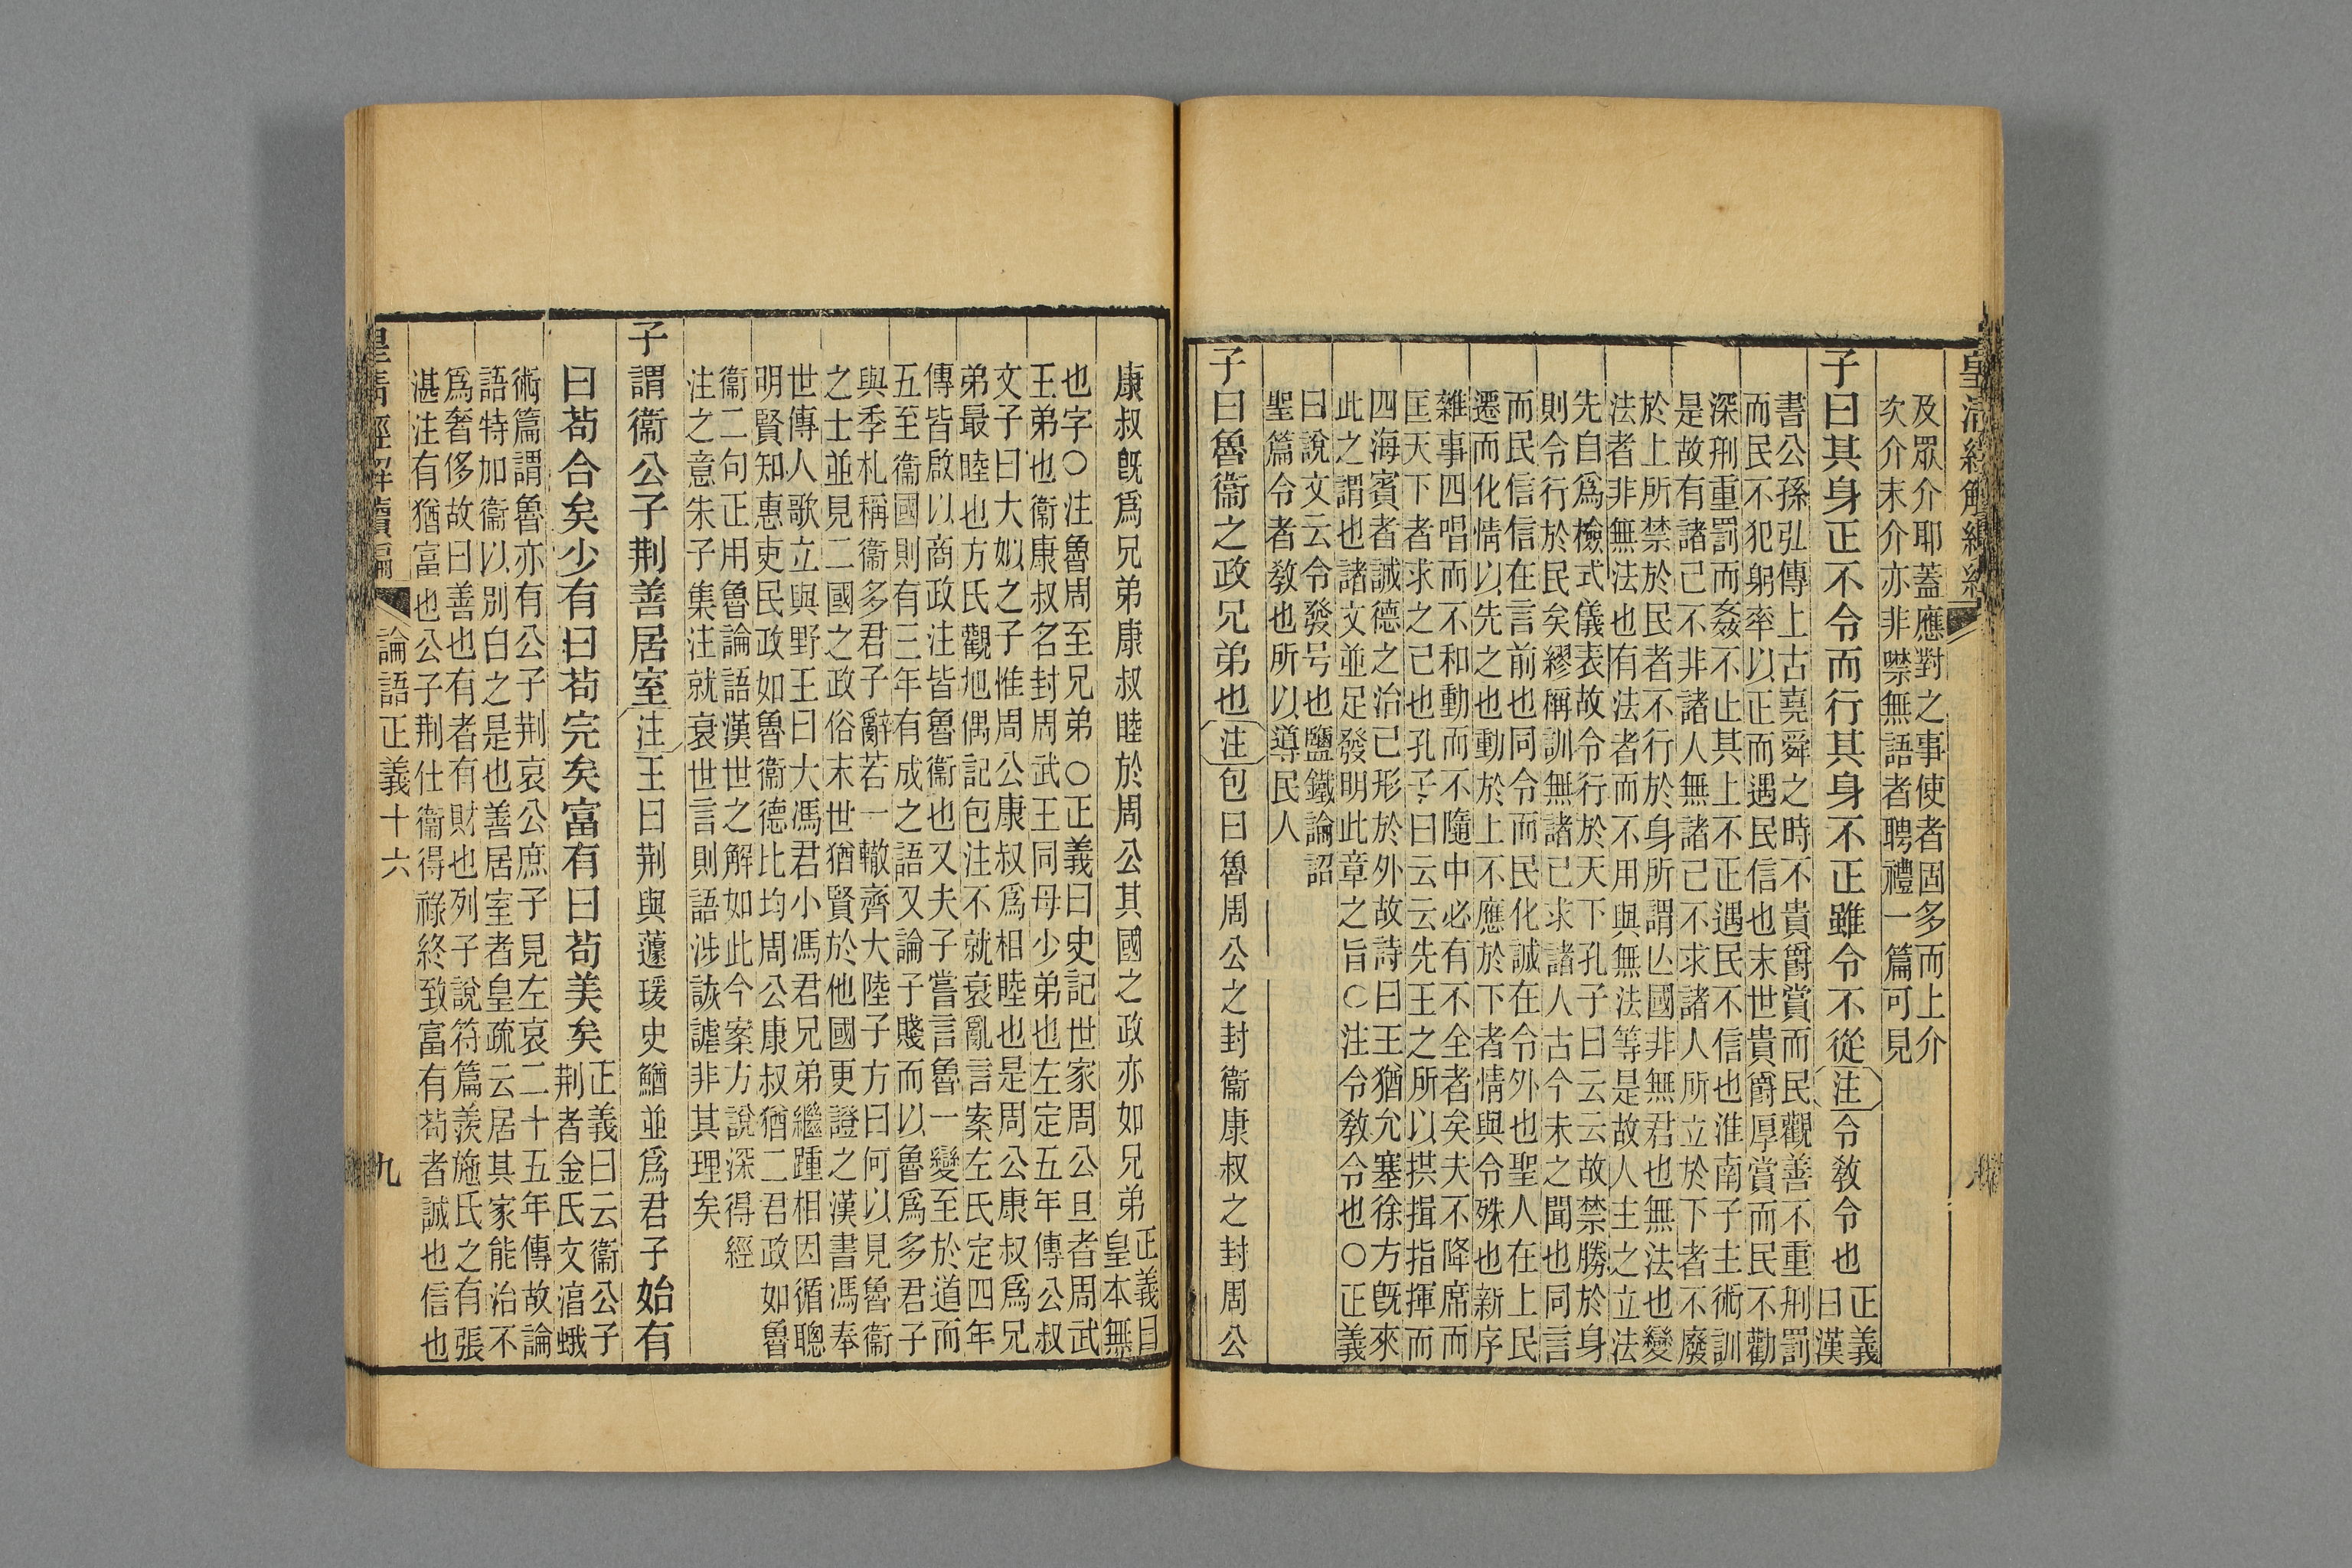 皇清經解續
及眾介耶蓋應對之事使者固多而上介
次介末介亦非噤無語者聘禮一篇可見
子曰其身正不令而行其身不正雖令不從注令教令也正義
曰漢
書公孫弘傳上古堯舜之時不貴爵賞而民觀善不重刑罰
而民不犯躬率以正而遇民信也末世貴爵厚賞而民不勸
深刑重罰而姦不止其上不正遇民不信也淮南子主術訓
是故有諸己不非諸人無諸己不求諸人所立於下者不廢
於上所禁於民者不行於身所謂亾國非無君也無法也變
法者非無法也有法者而不用與無法等是故人主之立法
先自爲檢式儀表故令行於天下孔子曰云云故禁勝於身
則令行於民矣繆稱訓無諸己求諸人古今未之聞也同言
而民信信在言前也同令而民化誠在令外也聖人在上民
遷而化情以先之也動於上不應於下者情與令殊也新序
雜事四唱而不和動而不隨中必有不全者矣夫不降席而
匡天下者求之己也孔子曰云云先王之所以拱揖指揮而
四海賓者誠德之治已形於外故詩曰王猶允塞徐方旣來
此之謂也諸文並足發明此章之旨○注令教令也○正義
曰說文云令發号也鹽鐵論詔
聖篇令者教也所以導民人
子曰魯衞之政兄弟也注包曰魯周公之封衞康叔之封周公
康叔旣爲兄弟康叔睦於周公其國之政亦如兄弟正義曰
皇本無
也字○注魯周至兄弟○正義曰史記世家周公旦者周武
王弟也衞康叔名封周武王同母少弟也左定五年傳公叔
文子曰大姒之子惟周公康叔爲相睦也是周公康叔爲兄
弟最睦也方氏觀旭偶記包注不就衰亂言案左氏定四年
傳皆啟以商政注皆魯衞也又夫子嘗言魯一變至於道而
五至衞國則有三年有成之語又論子賤而以魯爲多君子
與季札稱衞多君子辭若一轍齊大陸子方曰何以見魯衞
之士並見二國之政俗末世猶賢於他國更證之漢書馮奉
世傳人歌立與野王曰大馮君小馮君兄弟繼踵相因循聰
明賢知惠吏民政如魯衞德比均周公康叔猶二君政如魯
衞二句正用魯論語漢世之解如此今案方說深得經
注之意朱子集注就衰世言則語涉詼謔非其理矣
子謂衞公子荆善居室注王曰荆與蘧瑗史鰌並爲君子始有
曰苟合矣少有曰苟完矣富有曰苟美矣正義曰云衞公子
荆者金氏文淐蛾
術篇謂魯亦有公子荆哀公庶子見左哀二十五年傳故論
語特加衞以別白之是也善居室者皇疏云居其家能治不
爲奢侈故曰善也有者有財也列子說符篇羨施氏之有張
湛注有猶富也公子荆仕衞得祿終致富有苟者誠也信也
皇清經解續編 論語正義十六 九